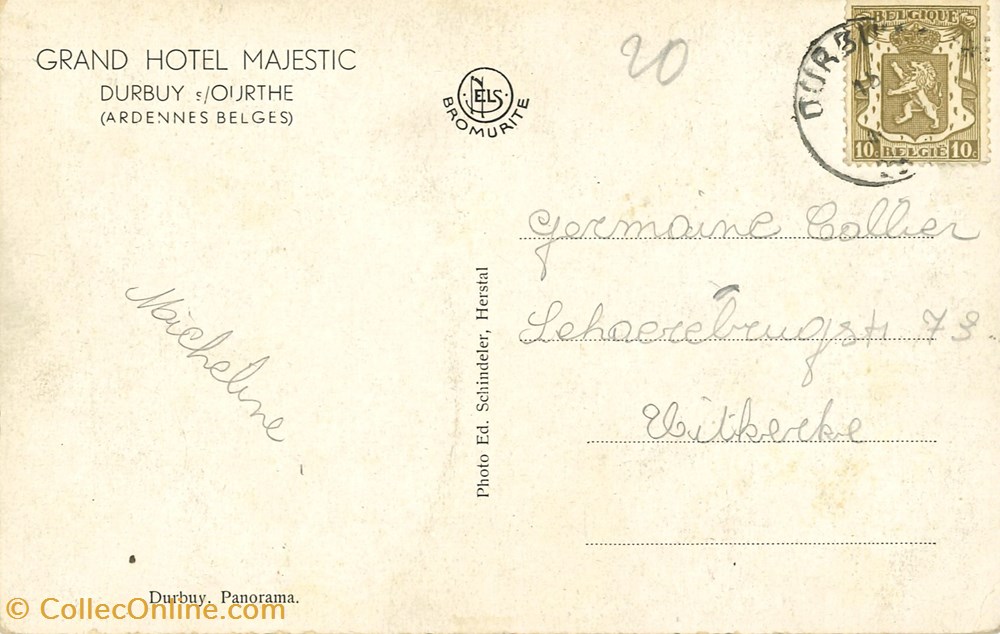 GRAND HOTEL MAJESTIC
DURBUY s/OURTHE
(ARDENNES BELGES)
NELS
BROMURITE
20
DURBUY
BELGIQUE
10c BELGIË 10c
Germaine Collier
73
Uitkerke
Micheline
Photo Ed. Schindeler, Herstal
Durbuy, Panorama.
© CollecOnline.com